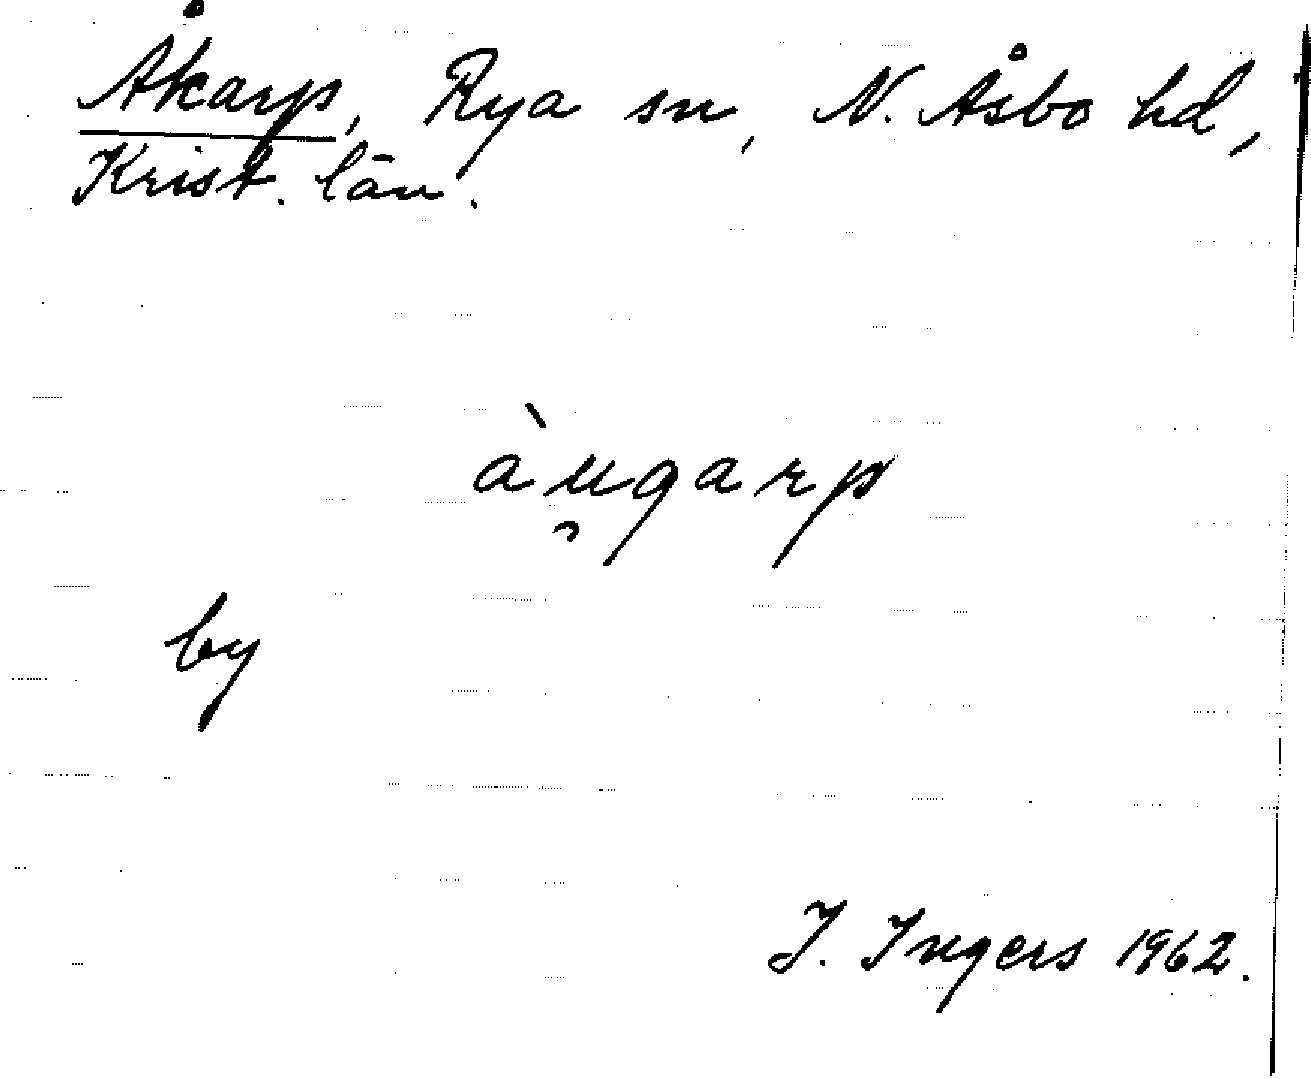 Åkarp, Rya sn, N. Åsbo hd,
Krist. län.
àu̯garp
by
J. Ingers 1962.